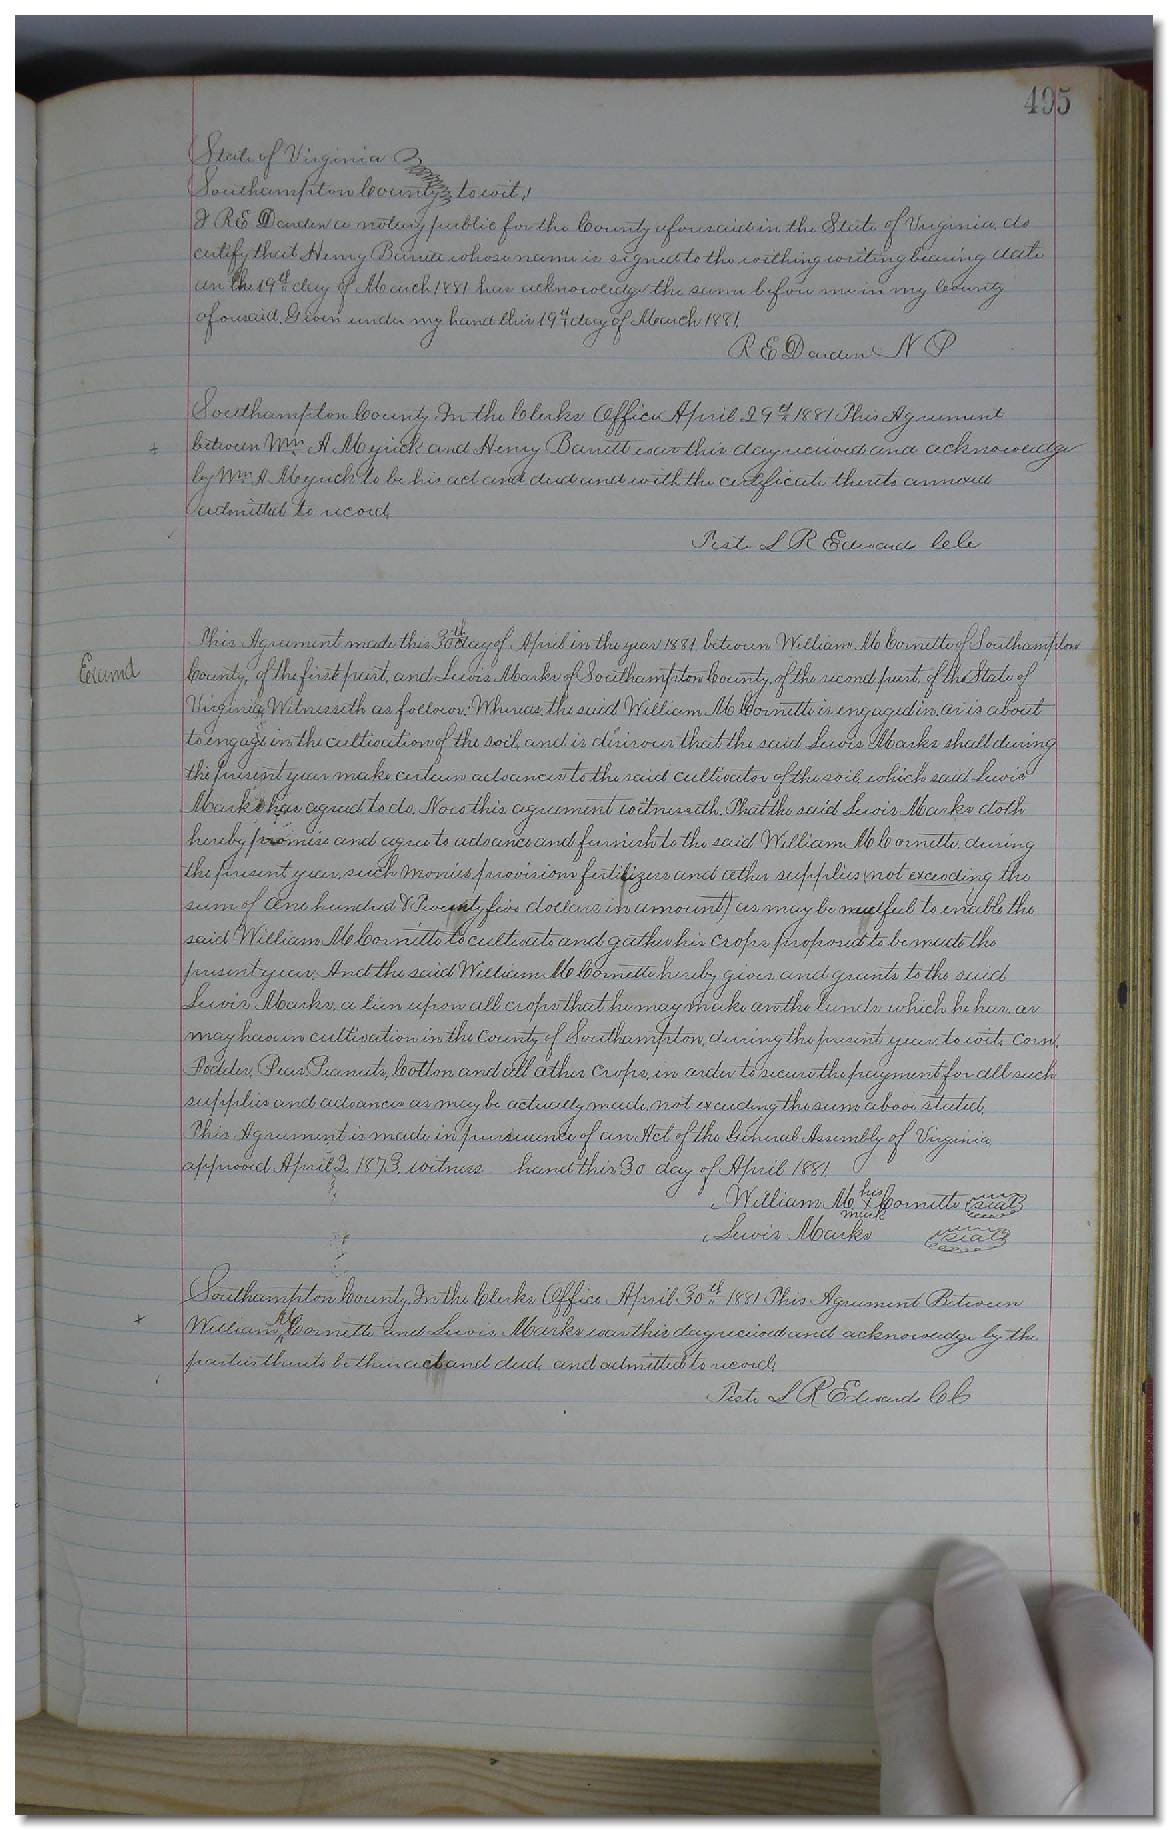 495
State of Virginia
Southampton County to wit,
I R E Darden a notary public for the County aforesaid in the State of Virginia, do
certify that Henry Barrett whose name is signed to the withing writing bearing date
on the 19th day of March 1881 has acknowledge the same before me in my County
aforesaid. Given under my hand this 19th day of March 1881.
R E Darden N P
Southampton County. In the Clerks Office April 29th 1881 This Agreement
between Wm A Myrick and Henry Barrett was this day received and acknowledge
by Wm A Myrick to be his act and deed and with the certificate thereto annexed
admitted to record.
Teste L R Edwards CC
This Agreement made this 30th day of April in the year 1881 between William McCornette of Southampton
Examd
County, of the first part, and Lewis Marks of Southampton County, of the second part, of the State of
Virginia, Witnesseth as follows: Whereas, the said William McCornette is engaged in, or is about
to engage in the cultivation of the soil, and is desirous that the said Lewis Marks shall during
the present year make certain advances to the said cultivator of the soil, which said Lewis
Marks has agreed to do. Now this agreement witnesseth. That the said Lewis Marks doth
hereby promise and agree to advance and furnish to the said William McCornette, during
the present year, such monies, provisions fertilizers and other supplies (not exceeding the
sum of One hundred & Twenty five dollars in amount) as may be needful to enable the
said William McCornette to cultivate and gather his crops proposed to be made the
present year. And the said William McCornette hereby gives and grants to the said
Lewis Marks, a lien upon all crops that he may make on the lands which he has, or
may have in cultivation in the County of Southampton, during the present year, to wit, Corn,
Fodder, Peas, Peanuts, Cotton and all other Crops, in order to secure the payment for all such
supplies and advances as may be actually made, not exceeding the sum above stated,
This Agreement is made in pursuance of an Act of the General Assembly of Virginia,
approved April 2, 1873. witness hand this 30 day of April 1881
William Mc his + mark Cornette seal
Lewis Marks seal
Southampton County, In the Clerks Office April 30th 1881 This Agreement Between
William McCornette and Lewis Marks was this day received and acknowledge by the
parties thereto be their act and deed, and admitted to record,
Teste L R Edwards CC